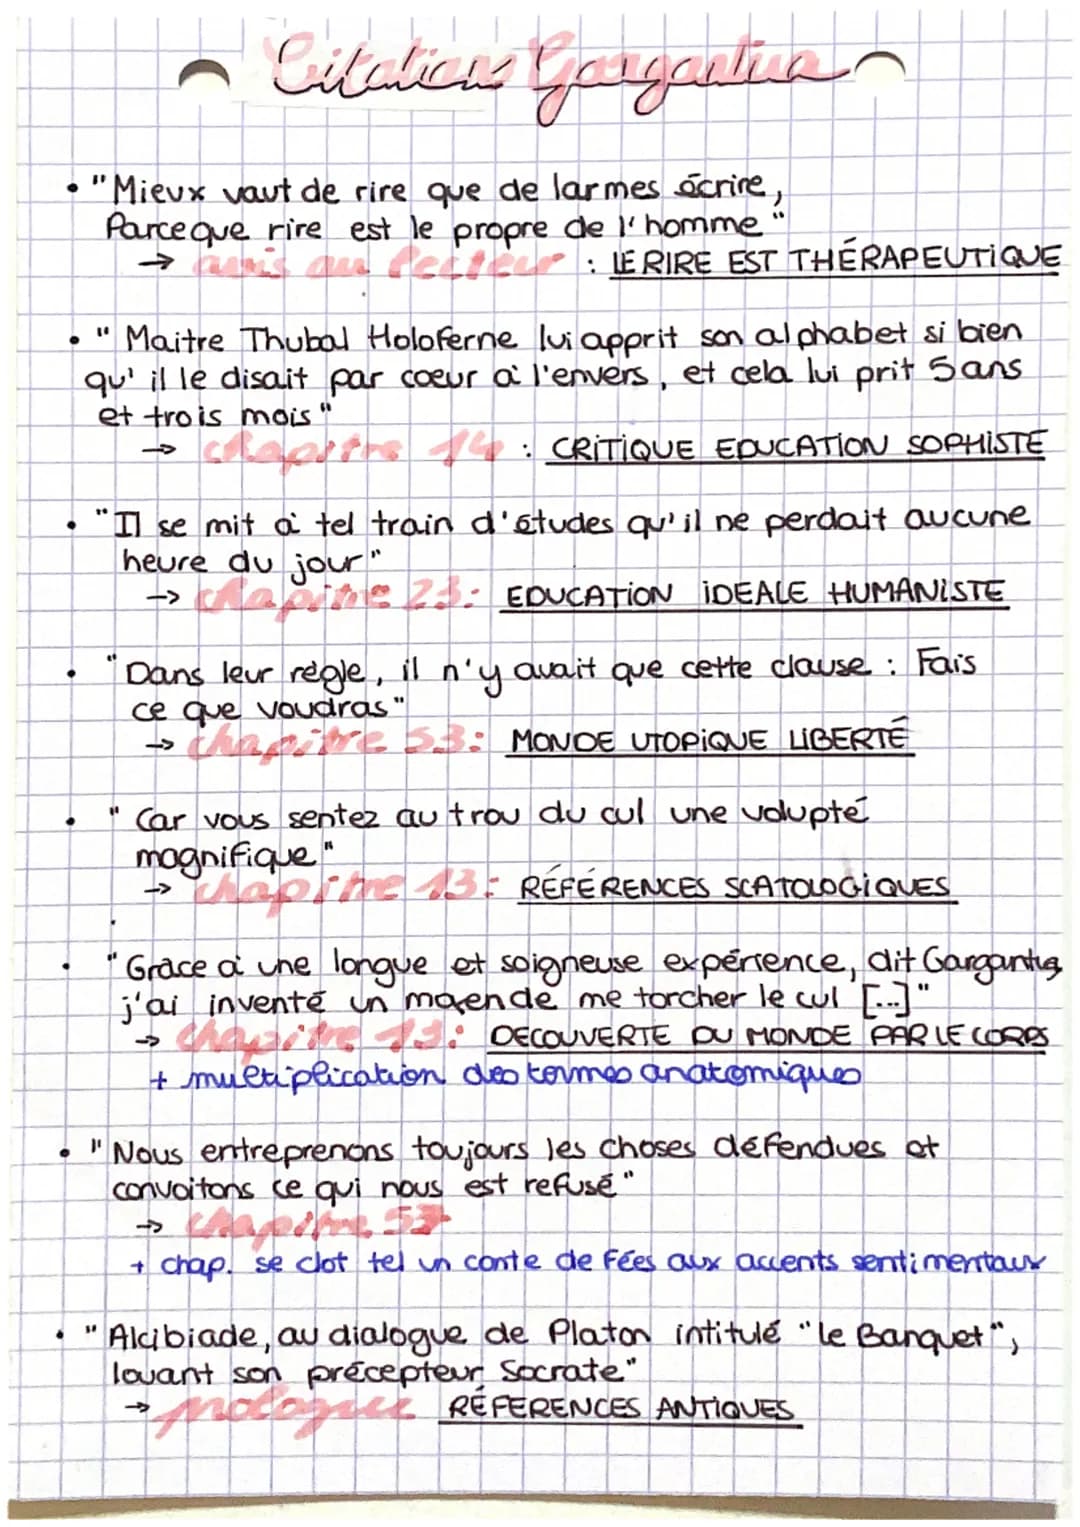 Citations Gargantua
• "Mieux vaut de rire que de larmes écrire,
Parceque rire est le propre de l'homme"
→ avis au lecteur : LE RIRE EST THÉRAPEUTIQUE
• "Maitre Thubal Holoferne lui apprit son alphabet si bien
qu'il le disait par coeur à l'envers, et cela lui prit 5 ans
et trois mois"
→ chapitre 14 : CRITIQUE EDUCATION SOPHISTE
• "Il se mit à tel train d'études qu'il ne perdait aucune
heure du jour"
→ chapitre 23: EDUCATION IDEALE HUMANISTE
• "Dans leur règle, il n'y avait que cette clause : Fais
ce que voudras"
→ chapitre 53: MONDE UTOPIQUE LIBERTÉ
• "Car vous sentez au trou du cul une volupté
magnifique"
→ chapitre 13: RÉFÉRENCES SCATOLOGIQUES
• "Grâce à une longue et soigneuse expérience, dit Gargantua
j'ai inventé un moyen de me torcher le cul [...]"
→ chapitre 13: DECOUVERTE DU MONDE PAR LE CORPS
+ multiplication des termes anatomiques
• "Nous entreprenons toujours les choses défendues et
convoitons ce qui nous est refusé"
→ chapitre 57
+ chap. se clot tel un conte de Fées aux accents sentimentaux
• "Alcibiade, au dialogue de Platon intitulé "le Banquet",
louant son précepteur Socrate"
→ prologue RÉFERENCES ANTIQUES